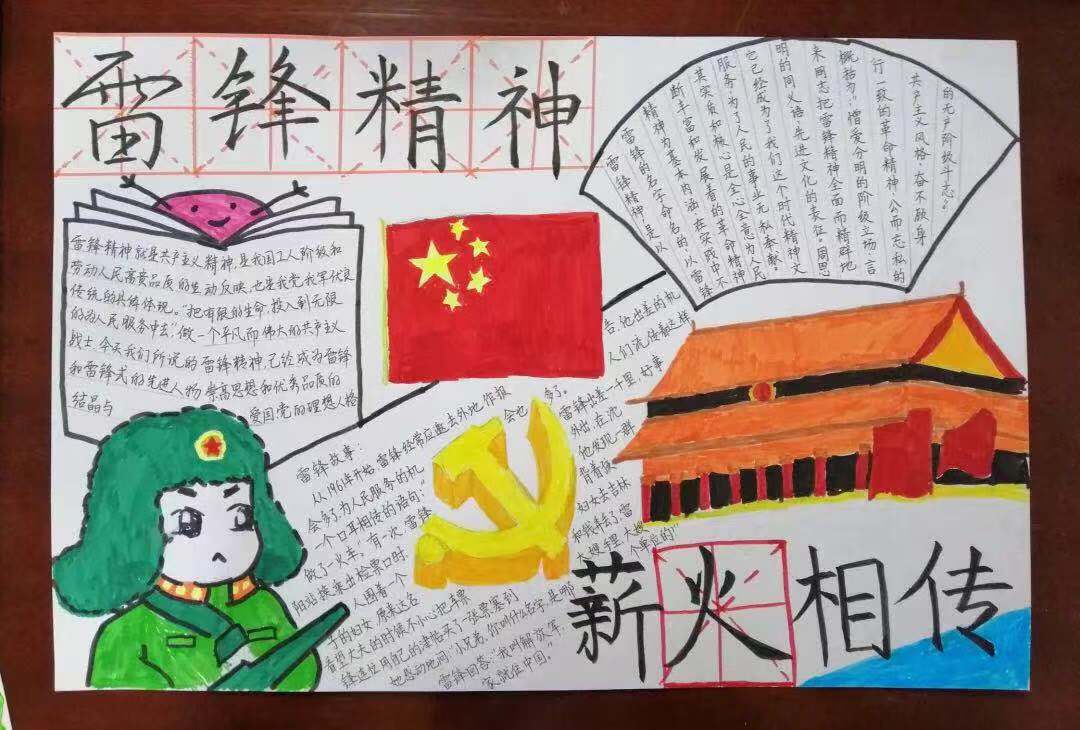 雷锋精神
雷锋精神是以
雷锋的名字命名的以雷锋
精神为基本内涵,在实践中不
断丰富和发展着的革命精神
其实质和核心是全心全意为人民
服务,为了人民的事业无私奉献。
它已经成为了我们这个时代精神文
明的同义语先进文化的表征。周恩
来同志把雷锋精神全面而精辟地
概括为:“憎爱分明的阶级立场、言
行一致的革命精神、公而忘私的
共产主义风格、奋不顾身
的无产阶级斗志。”
雷锋精神就是共产主义精神,是我国工人阶级和
劳动人民高贵品质的生动反映,也是我党我军优良
传统的具体体现。“把有限的生命,投入到无限
的为人民服务中去”,做一个平凡而伟大的共产主义
战士,今天我们所说的雷锋精神,已经成为雷锋
和雷锋式的先进人物崇高思想和优秀品质的
结晶与 爱国党的理想人格
雷锋故事:
从1961年开始,雷锋经常应邀去外地作报告,他出差的机
会多了,为人民服务的机会也多了。人们流传着这样
一个口耳相传的语句:“雷锋出差一千里,好事
做了一火车。”有一次,雷锋外出,在沈
阳站换乘出检票口时他发现一群
人围着一个背着孩
子的妇女,原来这名妇女去吉林
看望丈夫的时候不小心把车票和钱丢了,雷
锋连忙用自己的津贴买了一张票塞到大嫂手里,大嫂
她感动地问“小兄弟,你叫什么名字,是哪个单位的”
雷锋回答“我叫解放军,
家就住中国。”
薪火相传